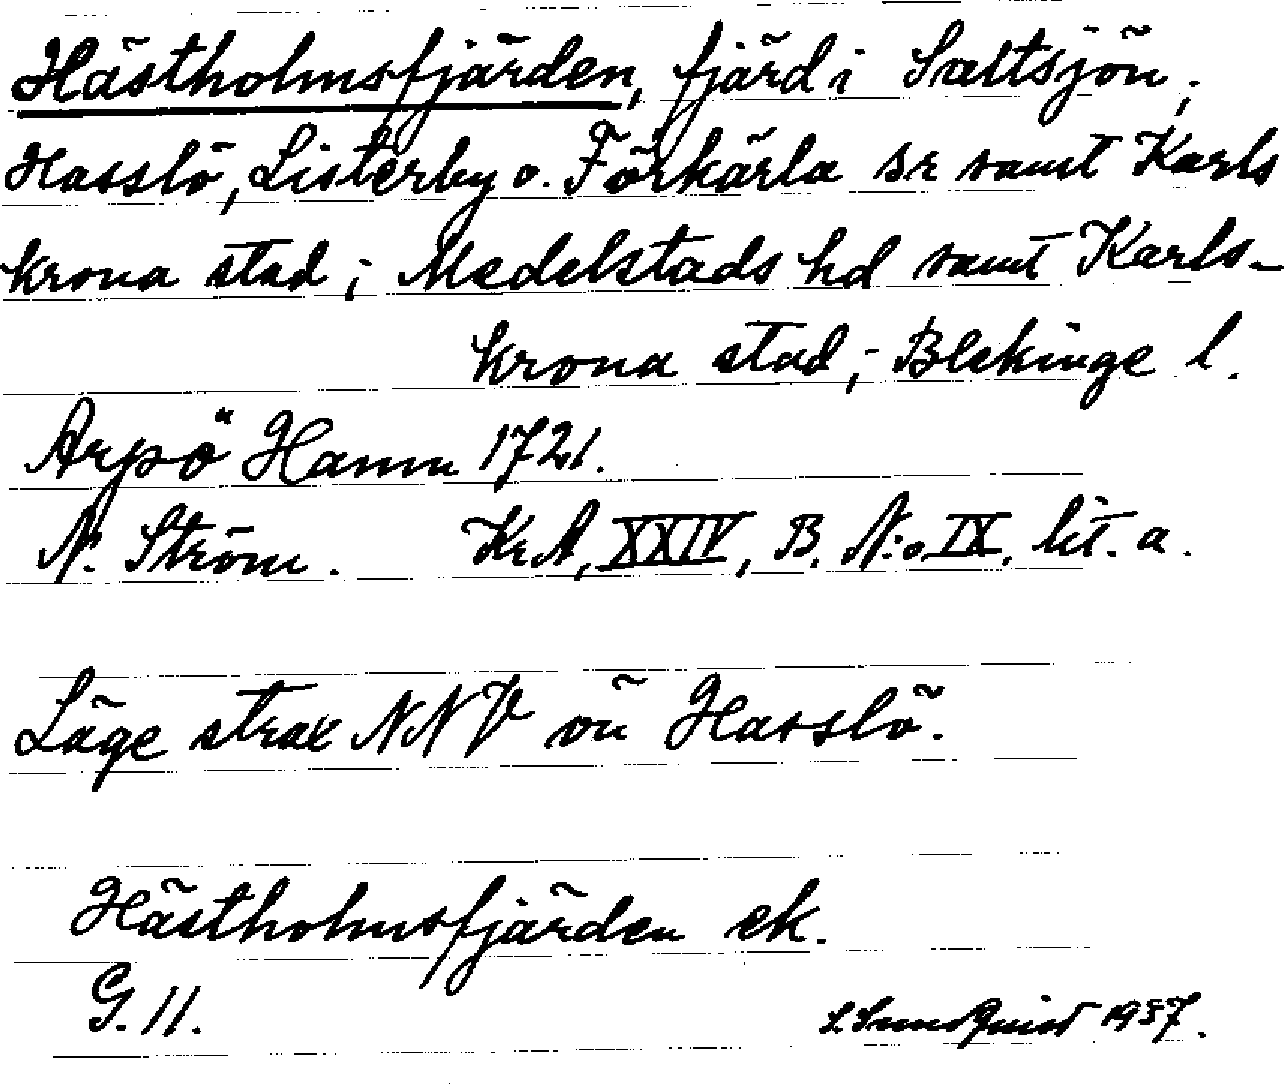 Hästholmsfjärden, fjärd i Saltsjön,
Hasslö, Listerby o. Förkärla sr samt Karls
krona stad; Medelstads hd samt Karls-
krona stad; Blekinge l.
Arpö Hamn 1721.
N. Ström. KrA, XXIV, B. N:o IX, lit. a.
Läge strax NNV ön Hasslö.
Hästholmsfjärden ek.
G. 11.
S. Sundquist 1937.